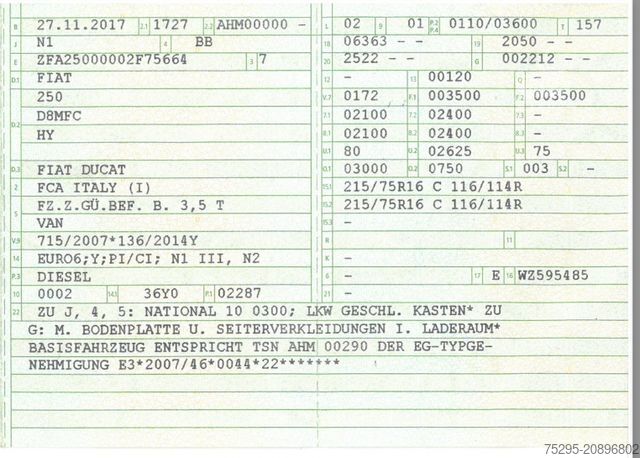 B 27.11.2017 2.1 1727 2.2 AHM00000 - L 02 9 01 P.2 P.4 0110/03600 T 157
J N1 4 BB 18 06363 - - 19 2050 - -
E ZFA25000002F75664 3 7 20 2522 - - G 002212 - -
D.1 FIAT 12 - 13 00120 Q -
250 V.7 0172 F.1 003500 F.2 003500
D.2 D8MFC 7.1 02100 7.2 02400 7.3 -
HY 8.1 02100 8.2 02400 8.3 -
U.1 80 U.2 02625 U.3 75
D.3 FIAT DUCAT O.1 03000 O.2 0750 S.1 003 S.2 -
2 FCA ITALY (I) 15.1 215/75R16 C 116/114R
5 FZ.Z.GÜ.BEF. B. 3,5 T 15.2 215/75R16 C 116/114R
VAN 15.3 -
V.9 715/2007*136/2014Y R 11
14 EURO6;Y;PI/CI; N1 III, N2 K -
P.3 DIESEL 6 - 17 E 16 WZ595485
10 0002 14.1 36Y0 P.1 02287 21 -
22 ZU J, 4, 5: NATIONAL 10 0300; LKW GESCHL. KASTEN* ZU
G: M. BODENPLATTE U. SEITERVERKLEIDUNGEN I. LADERAUM*
BASISFAHRZEUG ENTSPRICHT TSN AHM 00290 DER EG-TYPGE-
NEHMIGUNG E3*2007/46*0044*22*******
75295-20896802